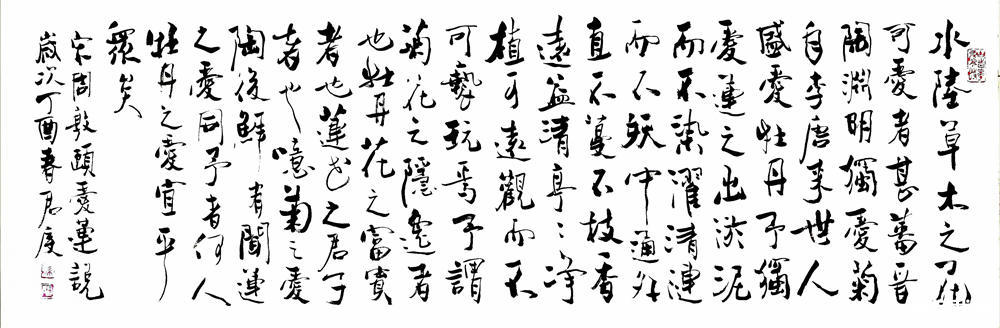 水陸草木之花
可愛者甚蕃晉
陶淵明獨愛菊
自李唐来世人
盛愛牡丹予獨
愛蓮之出淤泥
而不染濯清漣
而不妖中通外
直不蔓不枝香
遠益清亭〻净
植可遠觀而不
可褻玩焉予謂
菊花之隱逸者
也牡丹花之富貴
者也蓮花之君子
者也噫菊之愛
陶後鮮有聞蓮
之愛同予者何人
牡丹之愛宜乎
衆矣
宋周敦頤愛蓮説
歲次丁酉春君度